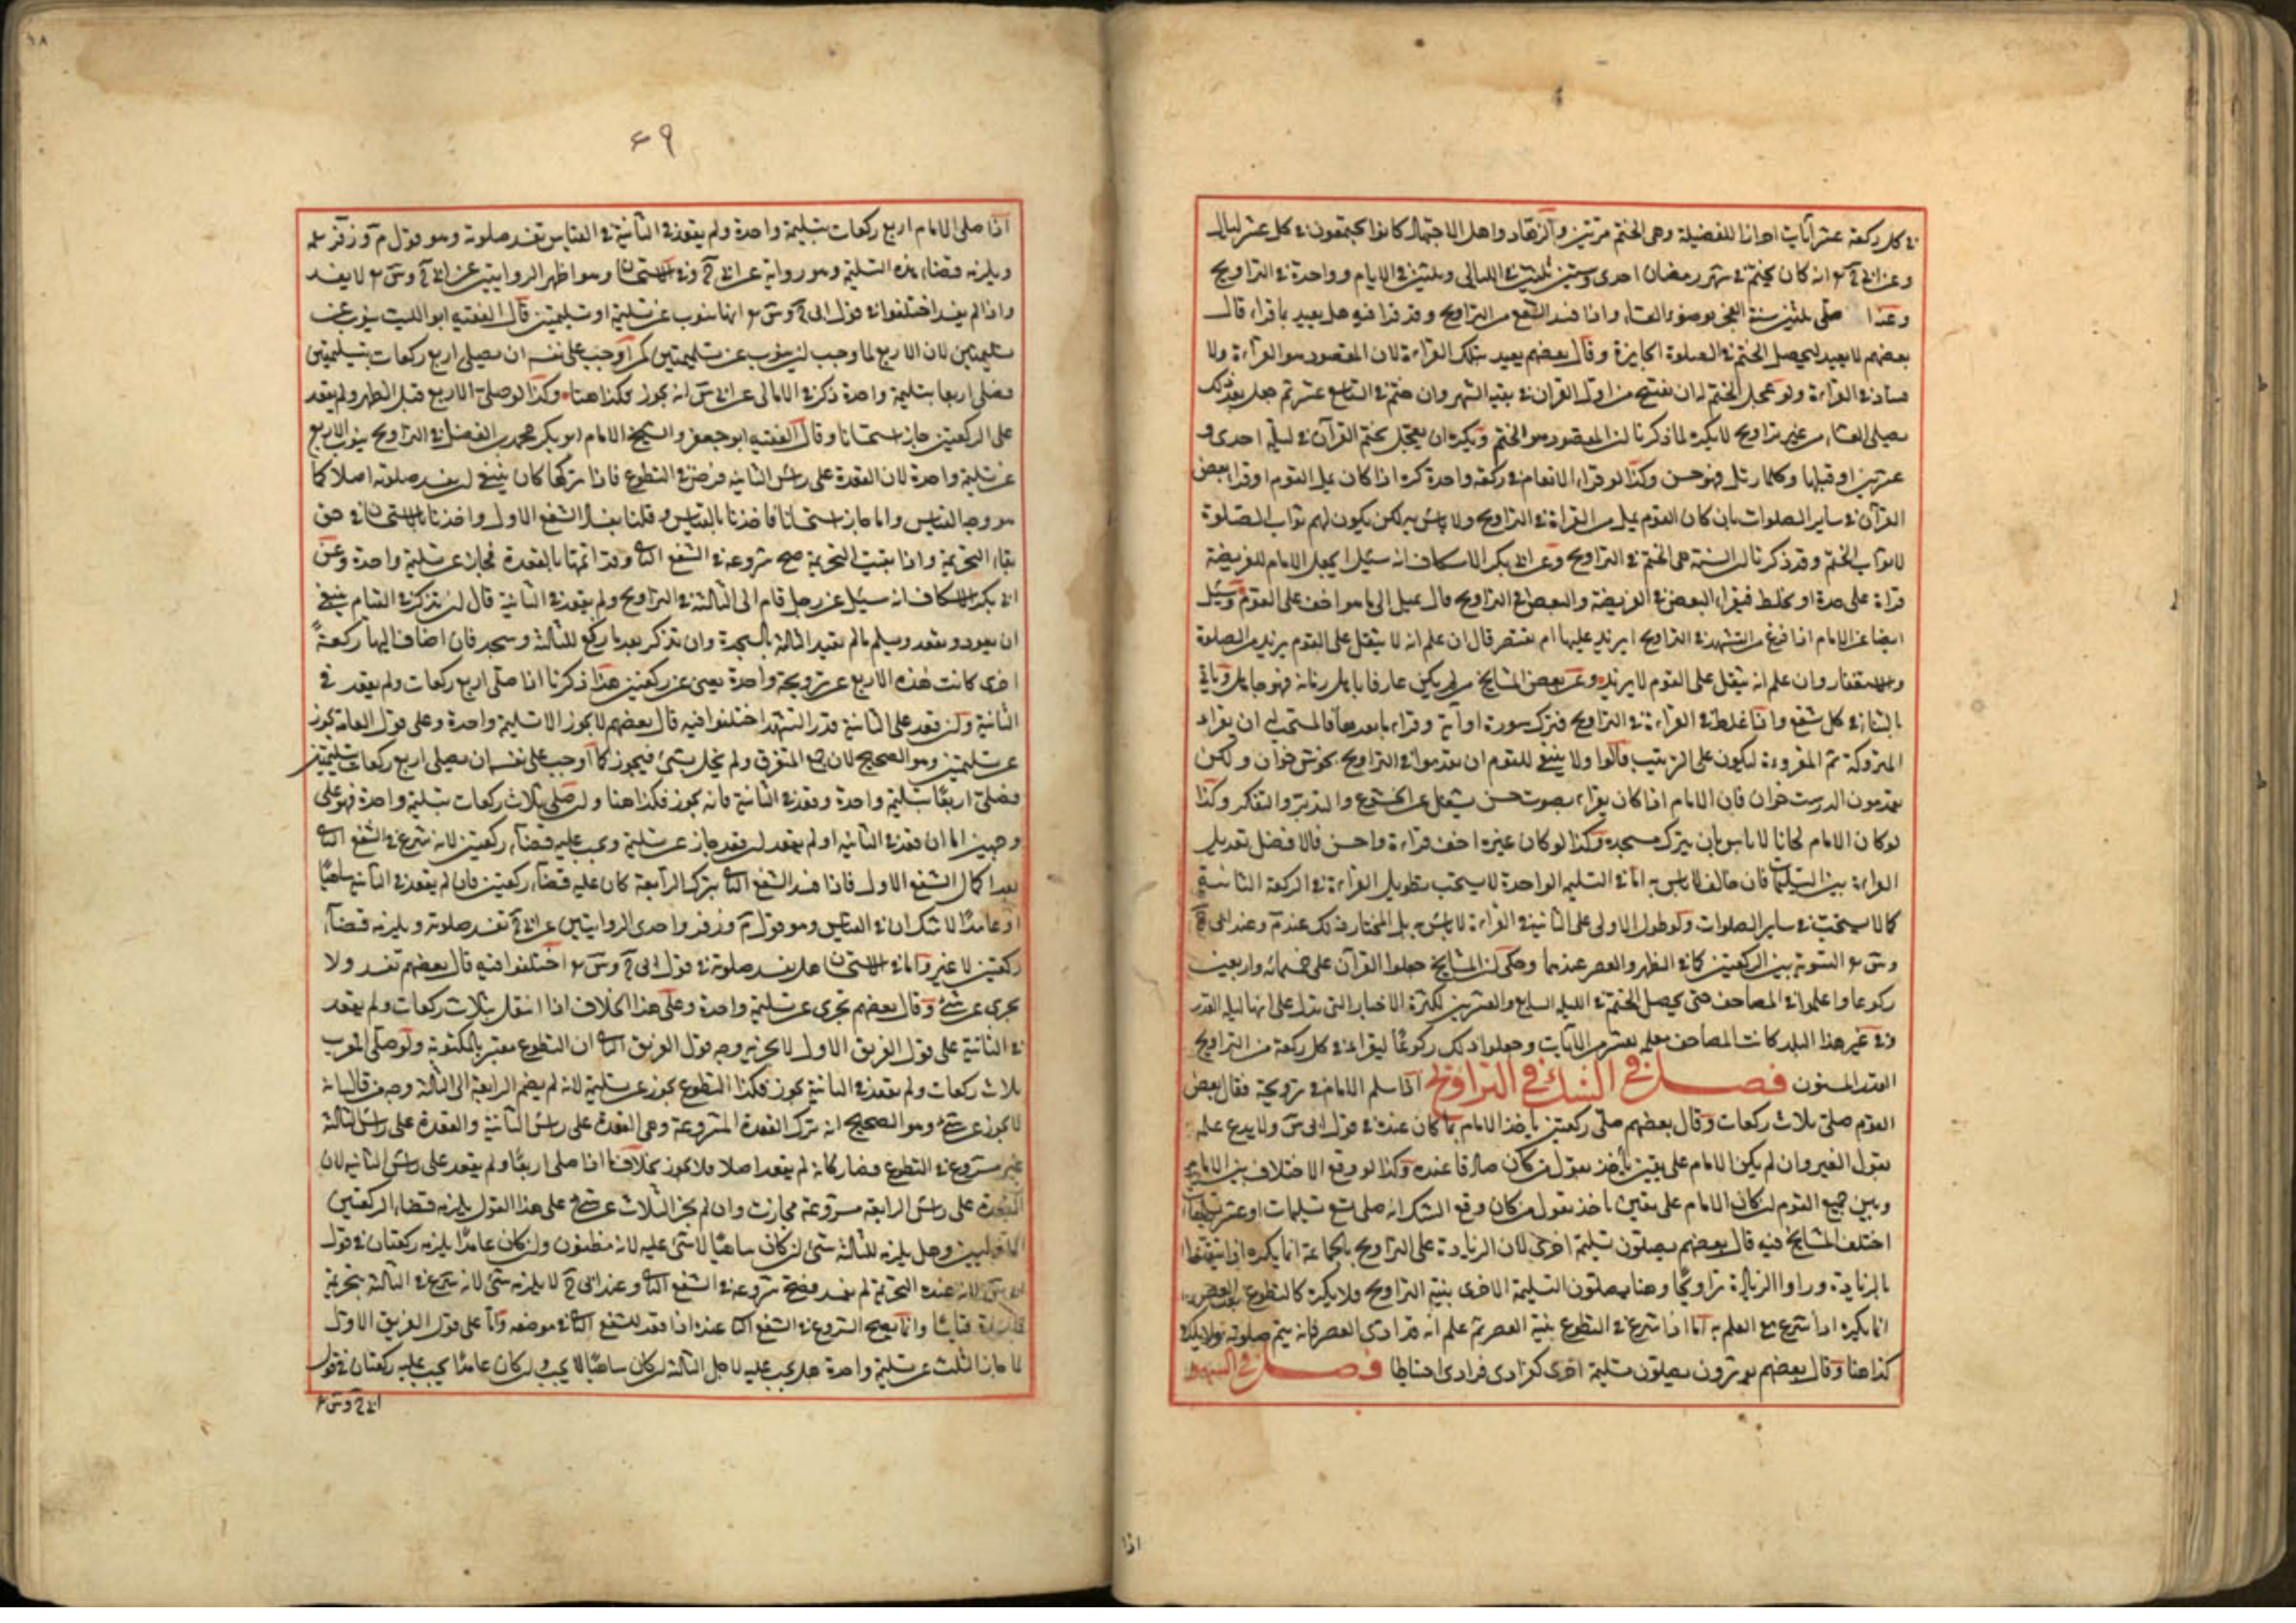 في كل ركعة عشر آيات احرازا للفضيلة وهي الختم مرتين والزهاد واهل الاجتهاد كانوا يختمون في كل عشر ليال
وعن ابي ح انه كان يختم في شهر رمضان احدى وستين ثلثين في الليالي وثلثين في الايام وواحدة في التراويح
صلى ثلثين سنة الفجر بوضوء العشاء واذا فسد الشفع من التراويح وقد قرا فيه هل يعيد ما قراء قال
بعضهم لا يعيد ليحصل الختم في الصلوة الجايزة وقال بعضهم يعيد تلك القراءة لان المقصود هو القراءة ولا
فساد في القراءة ولو عجل الختم له ان يفتتح من اول القران في بقية الشهر وان ختم في التاسع عشر ثم جعل بعد ذلك
يصلى العشاء من غير تراويح لا يكره لما ذكرنا ان المقصود هو الختم ويكره ان يعجل بختم القرآن في ليلة احدى و
عشرين او قبلها وكلما رتل فهو حسن وكذا لو قراء الانعام في ركعة واحدة كره اذا كان يمل القوم او قراء بعض
القرآن في ساير الصلوات بان كان القوم يمل من القراءة في التراويح ولا باس به لكن يكون لهم ثواب الصلوة
لا ثواب الختم وقد ذكرنا ان السنة هي الختم في التراويح وعن ابي بكر الاسكاف انه سئل ايجعل الامام للفريضة
قراءة على حدة او يخلط فيقراء البعض في الفريضة والبعض في التراويح قال يميل الى ما هو اخف على القوم وسئل
ايضا عن الامام اذا فرغ من التشهد في التراويح ايزيد عليها ام يقتصر قال ان علم انه لا يثقل على القوم يزيد من الصلوة
والاستغفار وان علم انه يثقل على القوم لا يزيد وعن بعض المشايخ من لم يكن عارفا باهل زمانه فهو جاهل وياتي
بالثناء في كل شفع واذا غلط في القراءة في التراويح فترك سورة او آية وقراء ما بعدها فالمستحب له ان يقراء
المتروكة ثم المقروءة ليكون على الترتيب قالوا ولا ينبغي للقوم ان يقدموا في التراويح بخوش خوان ولكن
يقدمون الدرست خوان فان الامام اذا كان يقراء بصوت حسن يشغل عن الخشوع والتدبر والتفكر وكذا
لو كان الامام لحانا لا باس بان يترك مسجده وكذا لو كان غيره اخف قراءة واحسن فالافضل تعديل
القراءة بين التسليمات فان خالف لا باس به اما في التسليمة الواحدة لا يستحب تطويل القراءة في الركعة الثانية
كما لا يستحب في ساير الصلوات ولو طول الاولى على الثانية في القراءة لا باس به بل المختار ذلك عند م وعند ابي ح
وس التسوية بين الركعتين كما في الظهر والعصر عندهما وحكي ان المشايخ جعلوا القرآن على خمسمائة واربعين
ركوعا واعلموا في المصاحف حتى يحصل الختم في الليلة السابع والعشرين لكثرة الاخبار التي تدل على انها ليلة القدر
وفي غير هذا البلد كانت المصاحف معلمة بعشر من الآيات وجعلوا ذلك ركوعًا ليقراء في كل ركعة من التراويح
القدر المسنون فصل في الشك في التراويح اذا سلم الامام في ترويحة فقال بعض
القوم صلى ثلاث ركعات وقال بعضهم صلى ركعتين ياخذ الامام بما كان عنده في قول ابي س ولا يدع علمه
بقول الغير وان لم يكن الامام على يقين ياخذ بقول من كان صادقا عنده وكذا لو وقع الاختلاف بين الامام
وبين جميع القوم ان كان الامام على يقين ياخذ بقول من كان وقع الشك انه صلى تسع تسليمات او عشر تسليمات
اختلف المشايخ فيه قال بعضهم يصلون تسليمة اخرى لان الزيادة على التراويح بالجماعة انما يكره اذا تيقنوا
بالزيادة وراوا الزيادة تراويحا وهنا يصلون التسليمة الاخرى بنية التراويح ولا يكره كالتطوع بعد العصر
انما يكره اذا شرع مع العلم به اما اذا شرع في التطوع بنية العصر ثم علم انه قد ادى العصر فانه يتم صلوته
كذا هنا وقال بعضهم يوترون يصلون تسليمة اخرى فرادى فرادى احتياطا فصل في السهو
اذا
٤٩
اذا صلى الامام اربع ركعات بتسليمة واحدة ولم يقعد في الثانية في القياس تفسد صلوته وهو قول م وزفر
ويلزمه قضاء هذه التسليمة وهو رواية عن ابي ح وفي الاستحسان وهو اظهر الروايتين عن ابي ح وس لا يفسد
واذا لم يفسد اختلفوا في قول ابي ح وس انها تنوب عن تسليمة او تسليمتين قال الفقيه ابو الليث ينوب عن
تسليمتين لان الاربع لما وجب ان ينوب عن تسليمتين كمن اوجب على نفسه ان يصلى اربع ركعات بتسليمتين
فصلى اربعا بتسليمة واحدة ذكر في الامالي عن ابي س انه يجوز فكذا هنا وكذا لو صلى الاربع قبل الظهر ولم يقعد
على الركعتين جاز استحسانا وقال الفقيه ابو جعفر والشيخ الامام ابو بكر محمد بن الفضل في التراويح ينوب الاربع
عن تسليمة واحدة لان القعدة على راس الثانية فرض في التطوع فاذا تركها كان ينبغي ان يفسد صلوته اصلا كما
هو وجه القياس وانما جاز استحسانا فاخذنا بالقياس وقلنا بفساد الشفع الاول واخذنا بالاستحسان في حق
بقاء التحريمة واذا بقيت التحريمة صح شروعه في الشفع الثاني وقد اتمها بالقعدة فجاز عن تسليمة واحدة وعن
ابي بكر الاسكاف انه سئل عن رجل قام الى الثالثة في التراويح ولم يقعد في الثانية قال ان تذكر في القيام ينبغي
ان يعود ويقعد ويسلم ما لم يقيد الثالثة بالسجدة وان تذكر بعد ما ركع للثالثة وسجد فان اضاف اليها ركعةً
اخرى كانت هذه الاربع عن ترويحة واحدة يعني عن ركعتين هذا ذكرنا اذا صلى اربع ركعات ولم يقعد في
الثانية وان قعد على الثانية قدر التشهد اختلفوا فيه قال بعضهم لا يجوز الا تسليمة واحدة وعلى قول العامة يجوز
عن تسليمتين وهو الصحيح لان جمع المتفرق ولم يخل بشئ فيجوز كما اوجب على نفسه ان يصلى اربع ركعات بتسليمتين
فصلى اربعًا بتسليمة واحدة وقعد في الثانية فانه يجوز فكذا هنا وان صلى ثلاث ركعات بتسليمة واحدة فهو على
وجهين اما ان قعد في الثانية او لم يقعد ان قعد جاز عن تسليمة ويجب عليه قضاء ركعتين لانه شرع في الشفع الثاني
بعد اكمال الشفع الاول فاذا فسد الشفع الثاني بترك الرابعة كان عليه قضاء ركعتين فان لم يقعد في الثانية ساهيًا
او عامدًا لا شك ان في القياس وهو قول م وزفر واحدى الروايتين عن ابي ح تفسد صلوته ويلزمه قضاء
ركعتين لا غير واما في الاستحسان هل يفسد صلوته في قول ابي ح وس اختلفوا فيه قال بعضهم تفسد ولا
يجزى عن شئ وقال بعضهم تجزى عن تسليمة واحدة وعلى هذا الخلاف اذا انتفل بثلاث ركعات ولم يقعد
في الثانية على قول الفريق الاول لا يجزيه وجه قول الفريق الثاني ان التطوع معتبر بالمكتوبة ولو صلى المغرب
ثلاث ركعات ولم يقعد في الثانية يجوز فكذا التطوع يجوز عن تسليمة لانه لم يضم الرابعة الى الثالثة وجه من قال بانه
لا يجوز عن شئ وهو الصحيح انه ترك القعدة المشروعة وهي القعدة على راس الثانية والقعدة على راس الثالثة
غير مشروع في التطوع فصار كانه لم يقعد اصلا فلا يجوز بخلاف ما اذا صلى اربعًا ولم يقعد على راس الثانية لان
القعدة على راس الرابعة مشروعة فجازت وان لم يجز الثلاث عن شئ على هذا القول يلزمه قضاء الركعتين
الاوليين وهل يلزمه للثالثة شئ ان كان ساهيًا لا شئ عليه لانه مظنون وان كان عامدًا يلزمه ركعتان في قول
ابي س لانه عنده التحريمة لم يفسد فصح شروعه في الشفع الثاني وعند ابي ح لا يلزمه شئ لانه شرع في الثالثة بتحريمة
فاسدة وانما يصح الشروع في الشفع الثاني عنده اذا قعد للشفع الثاني في موضعه واما على قول الفريق الاول
لما جاز الثلث عن تسليمة واحدة هل يجب عليه لاجل الثالثة ان كان ساهيًا لا يجب وان كان عامدًا يجب عليه ركعتان في قول
ابي ح وس